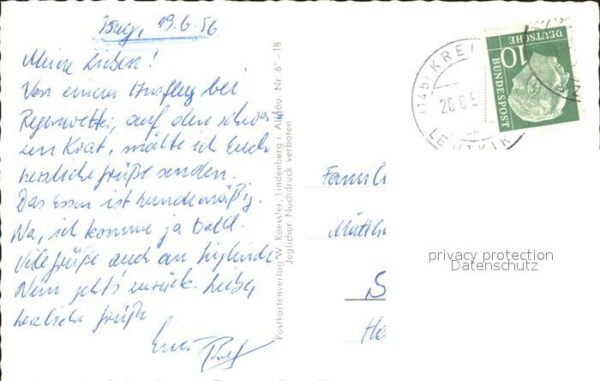 19.6.56
Meine Lieben!
Von einem Ausflug bei
Regenwetter, auf den
ein möchte ich Euch
herzliche Grüße senden.
Das Essen ist hundemäßig.
Na, ich komme ja bald.
Viele Grüße auch an
Nun geht's zurück. Liebe,
herzliche Grüße
Euer
Postkartenverlag W. Roessler, Lindenberg i. Allgäu. Nr. 6 - 18
Jeglicher Nachdruck verboten
DEUTSCHE
BUNDESPOST
10
(14b) KREI
20.6.5
LEUTKIR
Famil
privacy protection
Datenschutz